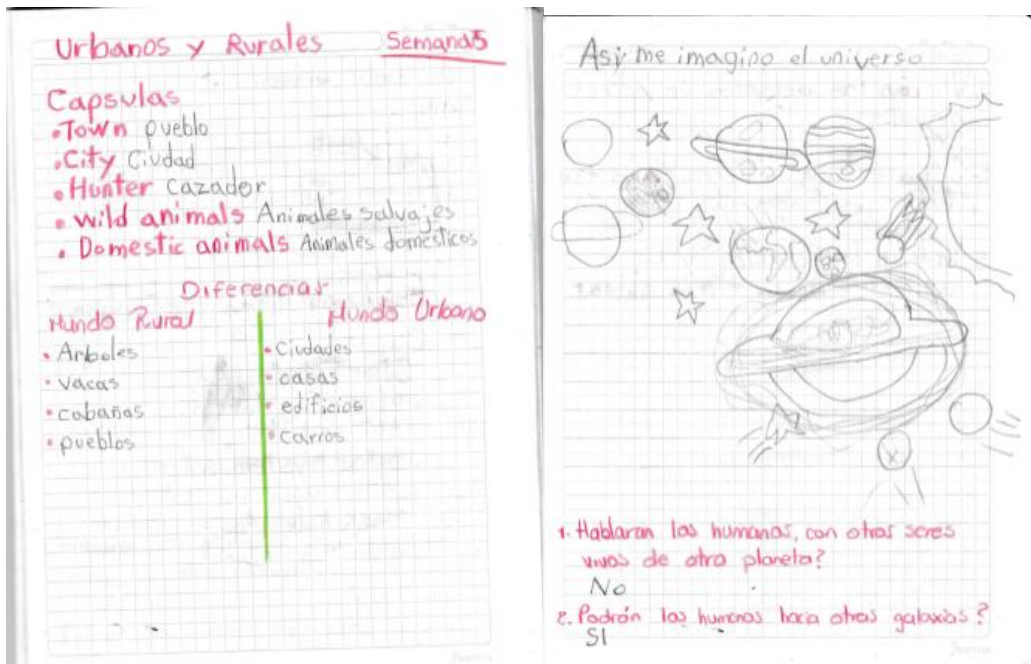 Urbanos y Rurales Semana5
Capsulas
• Town pueblo
• City Ciudad
• Hunter Cazador
• Wild animals Animales salvajes
• Domestic animals Animales domésticos
Diferencias
Mundo Rural
• Arboles
• Vacas
• cabañas
• pueblos
Mundo Urbano
• Ciudades
• casas
• edificios
• carros
Así me imagino el universo
1. Hablaran los humanos, con otros seres
vivos de otro planeta?
No
2. Podrán los humanos hacia otras galaxias?
SI